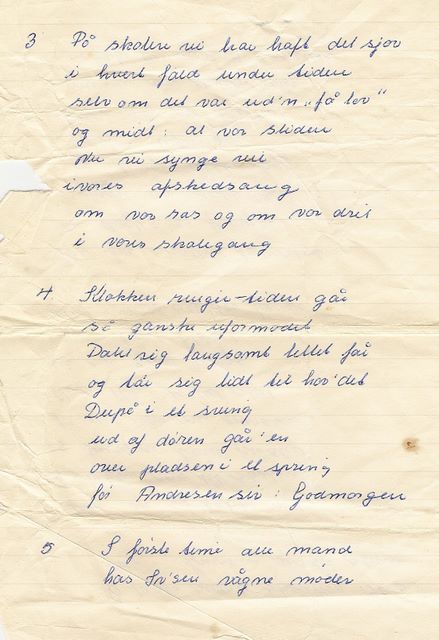 3 På skolen vi har haft det sjov
i hvert fald under tiden
selv om det var ud'n „få lov"
og midt i al vor sliden
Nu vi synge vil
i vores afskedsang
om vor sas og om vor dril
i vores skolegang
4 Klokken ringer - tiden går
så ganske uformodet
Dahl sig langsomt lettet får
og tar sig lidt til hov'det
Dupå i et sving
ud af døren går 'en
over pladsen i et spring
før Andresen sir : Godmorgen
5 I første time alle mand
hos Iv'sen vågne møder